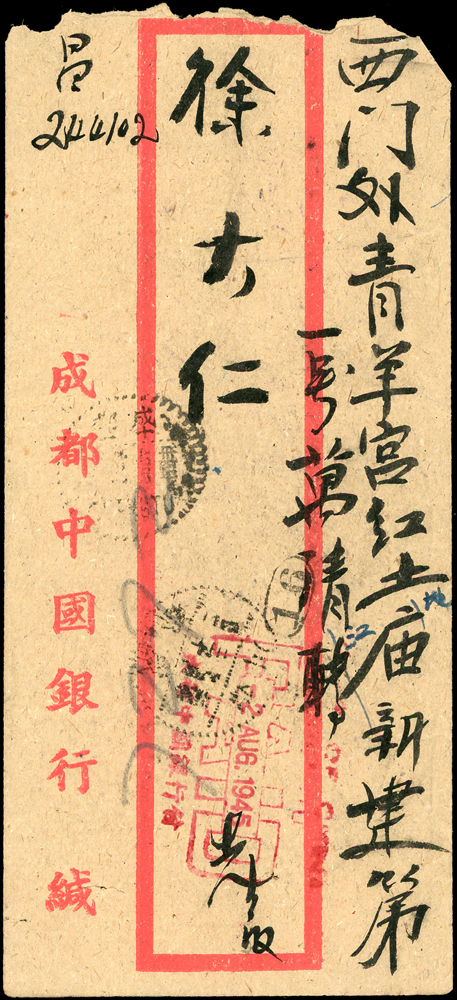 西门外青羊宫红土庙新建第
一号萬靖轉
徐大仁
先生收
昌
244102
成都中國銀行 緘
16
2 AUG 1945